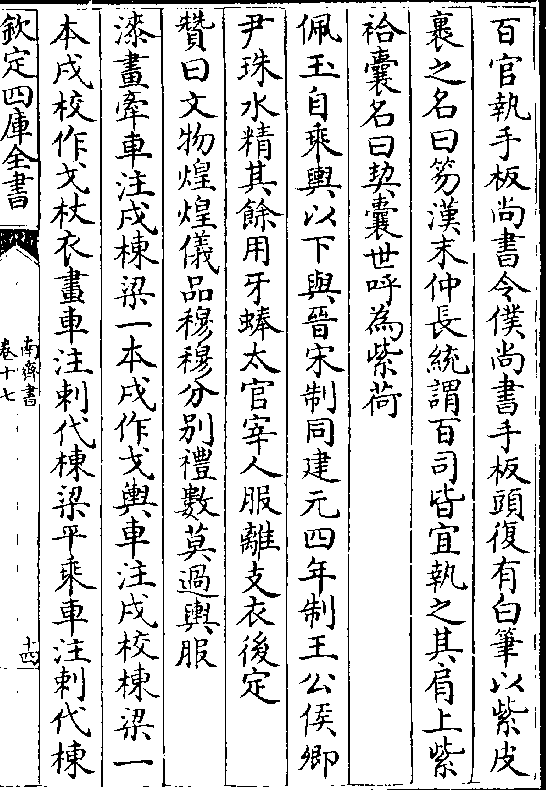 百官執手板尚書令僕尚書手板頭復有白筆以紫皮
裹之名曰笏漢末仲長統謂百司皆宜執之其肩上紫
袷囊名曰契囊世呼為紫荷
佩玉自乘輿以下與晉宋制同建元四年制王公侯卿
尹珠水精其餘用牙蜯太官宰人服離支衣後定
贊曰文物煌煌儀品穆穆分别禮數莫過輿服
漆畫牽車注戍棟梁一本戍作戈輿車注戍校棟梁一
本戍校作戈杖衣畫車注刺代棟梁平乘車注刺代棟
欽定四庫全書
南齊書
卷十七
十四